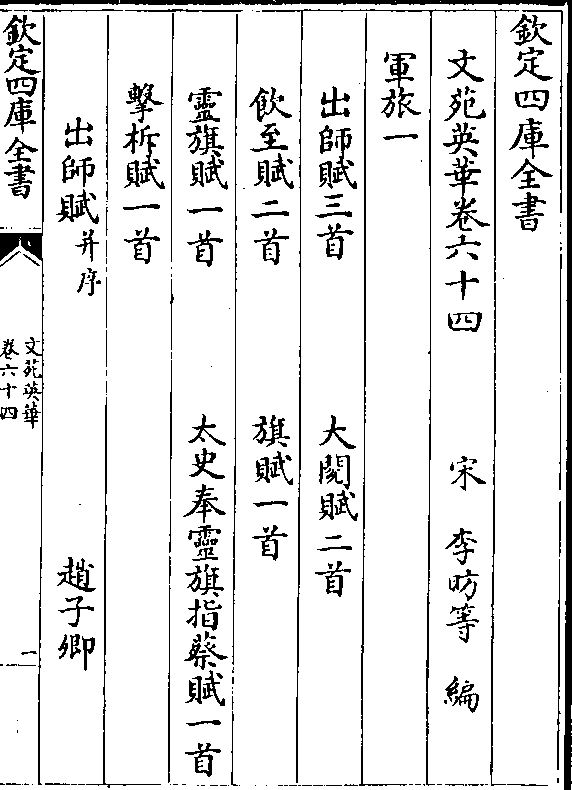 欽定四庫全書
文苑英華卷六十四　宋　李昉等　編
軍旅一
出師賦三首　大閱賦二首
飲至賦二首　旗賦一首
靈旗賦一首　太史奉靈旗指蔡賦一首
擊柝賦一首
出師賦并序　趙子卿
欽定四庫全書
文苑英華
卷六十四
一